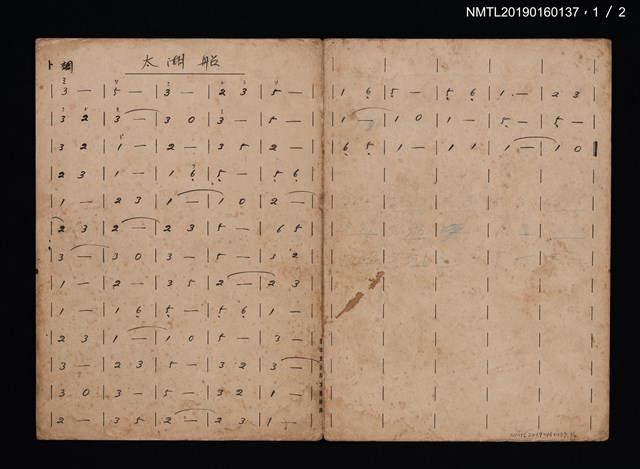 NMTL20190160137，1／2
ト調
太湖船
3 — | 5 — | 3 — | 2 3 | 5 — |
3 2 | 3 — | 3 0 | 3 — | 5 — |
3 2 | 1 — | 2 — | 3 5 | 2 — |
2 3 | 1 — | 1 6 | 5 — | 5 6 |
1 — | 2 3 | 1 — | 1 0 | 2 — |
2 3 | 2 — | 2 3 | 5 — | 6 5 |
3 — | 3 0 | 3 — | 5 — | 3 2 |
1 — | 2 — | 3 5 | 2 — | 2 3 |
1 — | 1 6 | 5 — | 5 6 | 1 — |
2 3 | 1 — | 1 0 | 5 — | 3 — |
3 — | 2 3 | 5 — | 3 2 | 3 — |
3 0 | 3 — | 5 — | 3 2 | 1 — |
2 — | 3 5 | 2 — | 2 3 | 1 — |
1 6 | 5 — | 5 6 | 1 — | 2 3 |
1 — | 1 0 | 1 — | 5 — | 5 — |
6 5 | 1 — | 1 1 | 1 — | 1 0 |